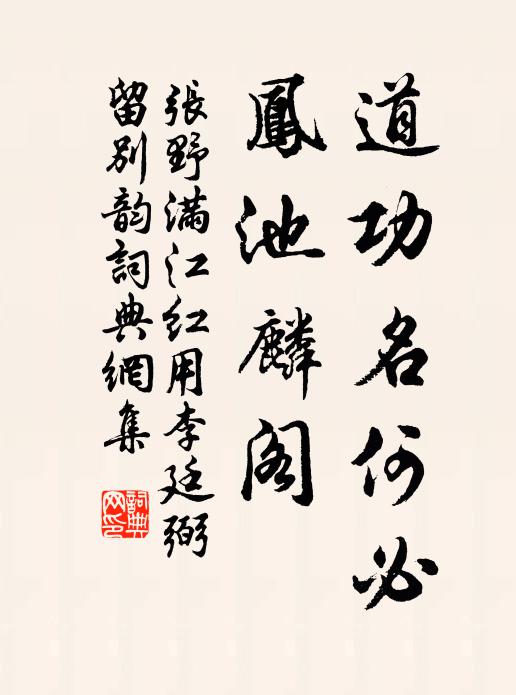 道功名何必
鳳池麟阁
張野满江红用李廷弼
留别韵詞典網集
詞典
网印